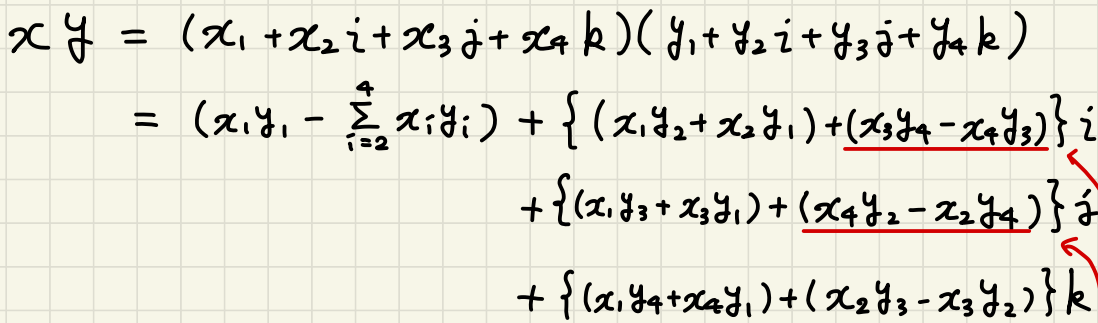 xy = (x₁ + x₂i + x₃j + x₄k)(y₁ + y₂i + y₃j + y₄k)
= (x₁y₁ - ∑_{i=2}^{4} xᵢyᵢ) + {(x₁y₂ + x₂y₁) + (x₃y₄ - x₄y₃)}i
+ {(x₁y₃ + x₃y₁) + (x₄y₂ - x₂y₄)}j
+ {(x₁y₄ + x₄y₁) + (x₂y₃ - x₃y₂)}k